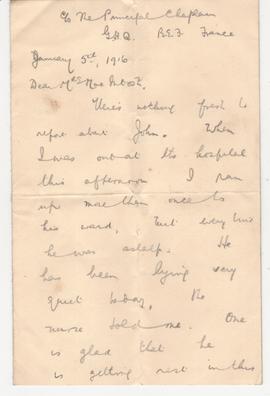 c/o The Principal Chaplain
G.H.Q. B.E.F. France
January 5th, 1916
Dear Mrs Mac
There's nothing fresh to
report about John. When
I was out at the hospital
this afternoon I ran
up more than once to
his ward, but every time
he was asleep. He
has been lying very
quiet today, the
nurse told me. One
is glad that he
is getting rest in this